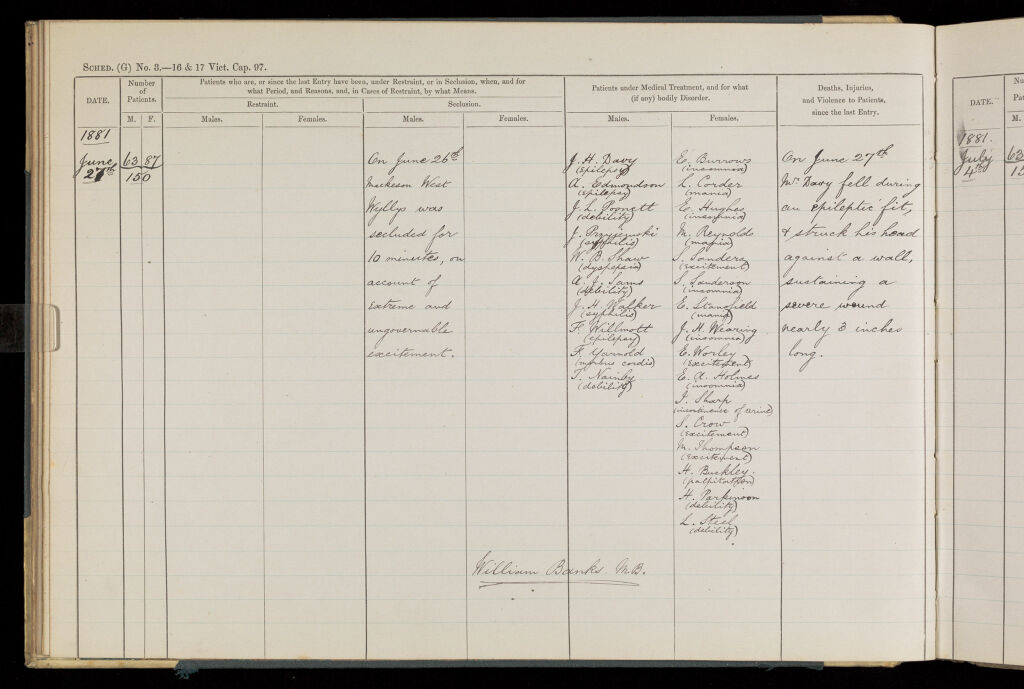 SCHED. (G) No. 3.—16 & 17 Vict. Cap. 97.
DATE.
Number
of
Patients.
M. F.
Patients who are, or since the last Entry have been, under Restraint, or in Seclusion, when, and for
what Period, and Reasons, and, in Cases of Restraint, by what Means.
Restraint.
Seclusion.
Males.
Females.
Males.
Females.
Patients under Medical Treatment, and for what
(if any) bodily Disorder.
Males.
Females.
Deaths, Injuries,
and Violence to Patients,
since the last Entry.
1881
June
27th
63 87
150
On June 26th
Mackeson West
Wyllys was
secluded for
10 minutes, on
account of
extreme and
ungovernable
excitement.
J. H. Davy
(Epilepsy)
A. Edmondson
(epilepsy)
J. L. Posnett
(debility)
J. Przyjemski
(syphilis)
W. B. Shaw
(dyspepsia)
A. J. Sams
(debility)
J. H. Walker
(syphilis)
F. Willmott
(epilepsy)
F. Yarnold
(morbus cordis)
T. Nainby
(debility)
E. Burrows
(insomnia)
L. Corder
(mania)
E. Hughes
(insomnia)
M. Reynolds
(mania)
S. Sanders
(excitement)
S. Sanderson
(insomnia)
E. Stansfield
(mania)
J. H. Wearing
(insomnia)
E. Worley
(Excitement)
E. A. Holmes
(insomnia)
I. Sharp
(incontinence of urine)
S. Crow
(Excitement)
M. Thompson
(Excitement)
H. Buckley.
(palpitation)
H. Parkinson
(debility)
L. Steel
(debility)
On June 27th
Mr. Davy fell during
an epileptic fit,
& struck his head
against a wall,
sustaining a
severe wound
nearly 3 inches
long.
William Banks. M.B.
DATE.
M.
1881.
July
4th
63